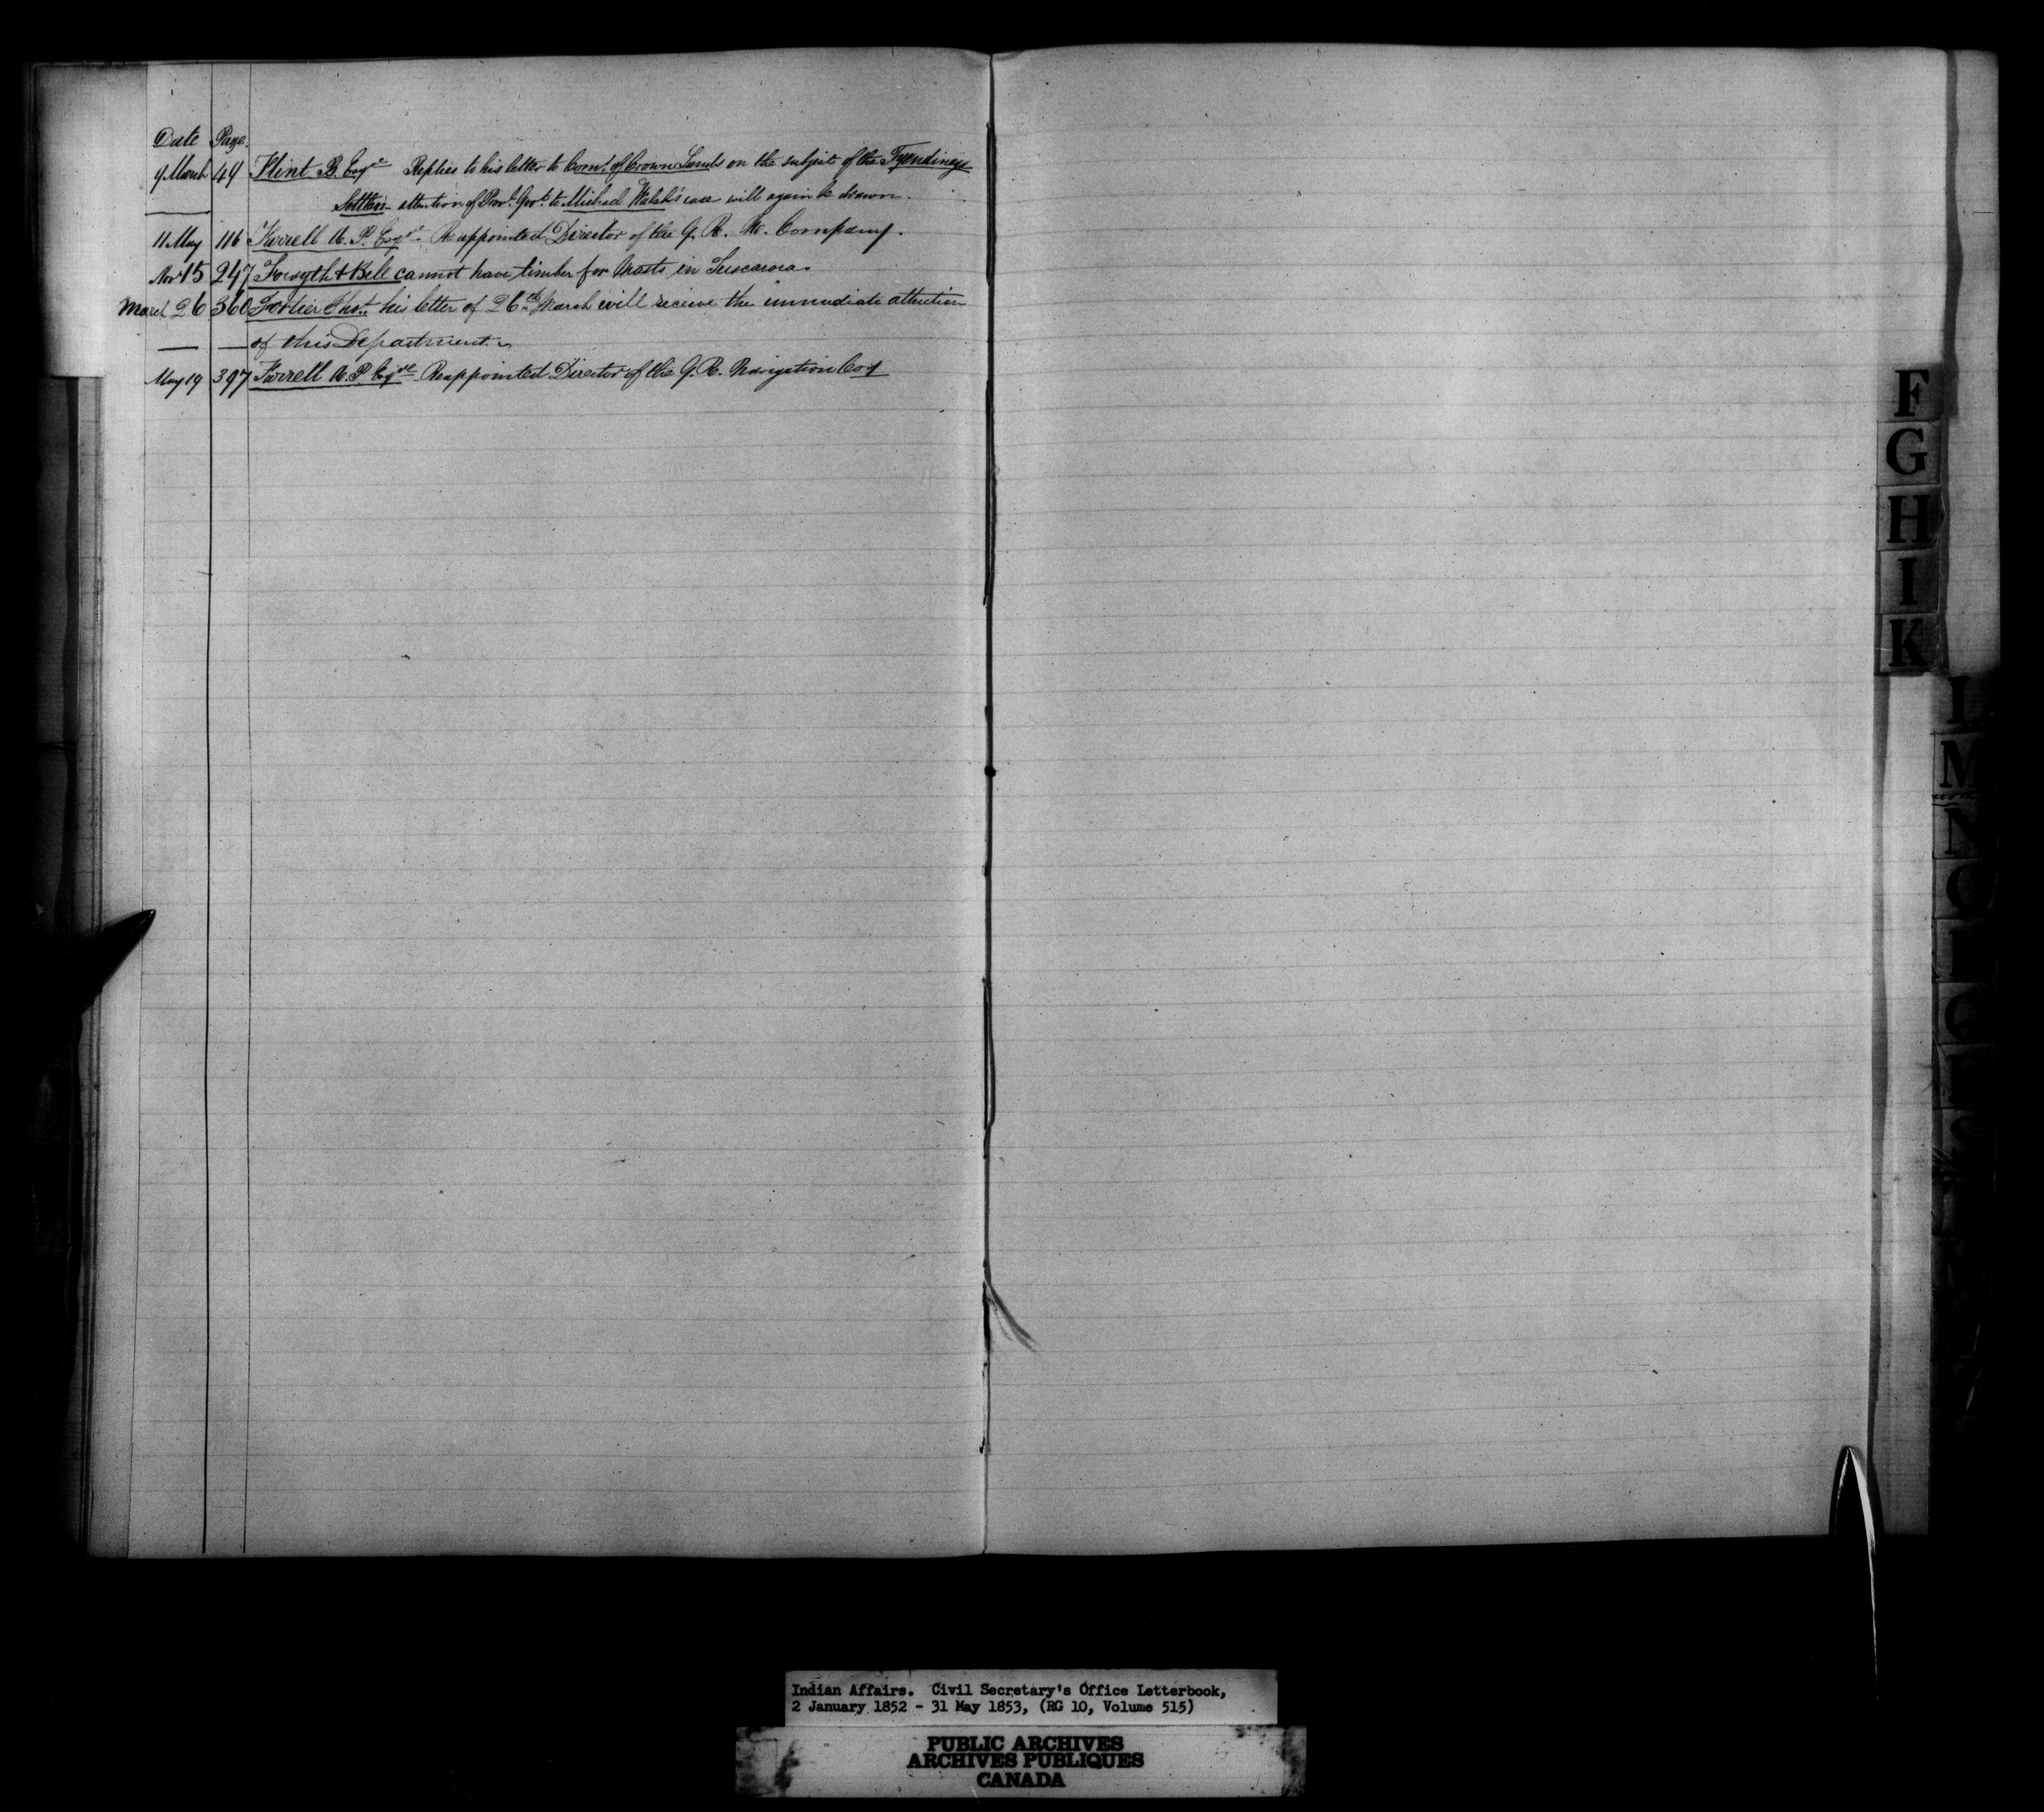 Date Page.
9 March 49 Flint B. Esqre Replies to his letter to Comr. of Crown Lands on the subject of the Tyendinaga
Settlers - attention of Prov. Govt. to Michael Walsh's case will again be drawn.
11 May 116 Farrell A. P. Esqre. Reappointed Director of the G. R. N. Company.
Nov 15 247 Forsyth & Bell cannot have timber for Masts in Tuscarora.
March 26 360 Fortier his letter of 26th March will receive the immediate attention
of this Department.
May 19 397 Farrell A. P Esqre Reappointed Director of the G. R. Navigation Coy
F
G
H
I
K
M
N
Indian Affairs. Civil Secretary's Office Letterbook,
2 January 1852 - 31 May 1853, (RG 10, Volume 515)
PUBLIC ARCHIVES
ARCHIVES PUBLIQUES
CANADA